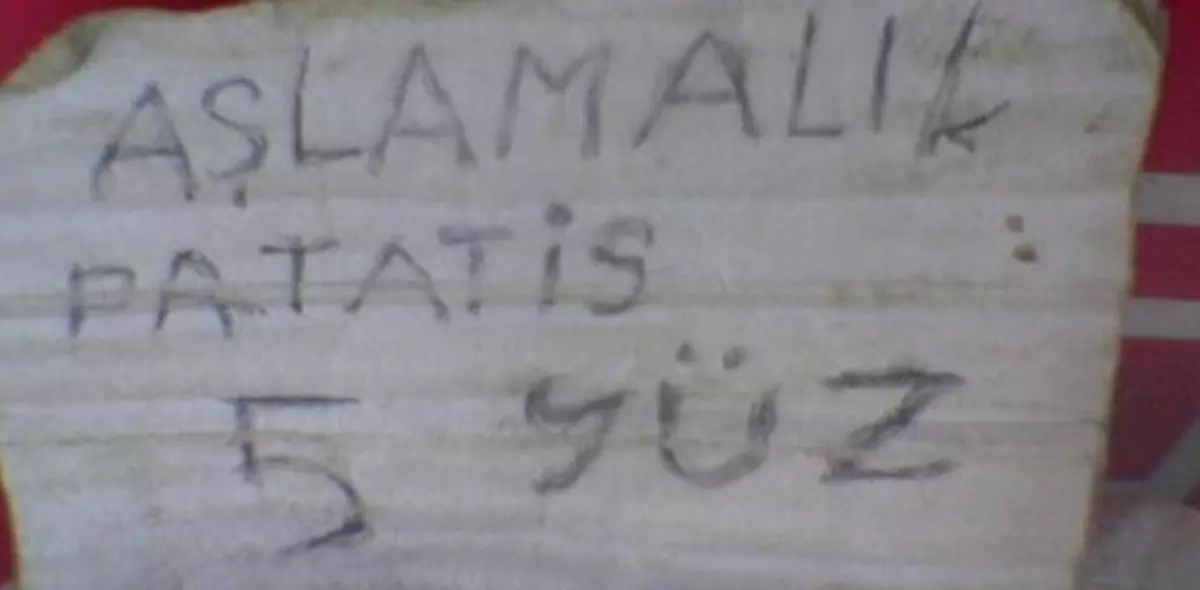 AŞLAMALIK
PATATİS :
5 YÜZ